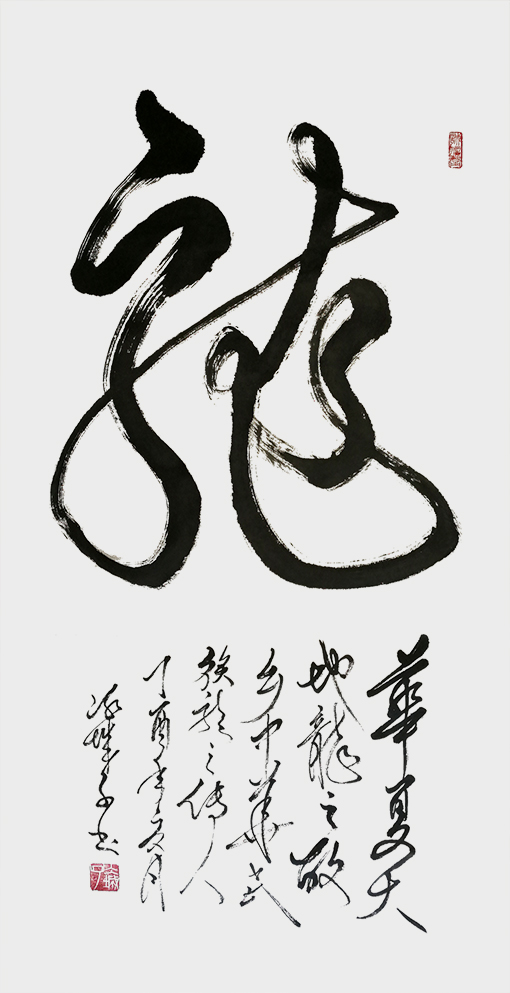 龍
華夏大
地龍之故
乡中華民
族龍之傳人
丁酉年月
子书